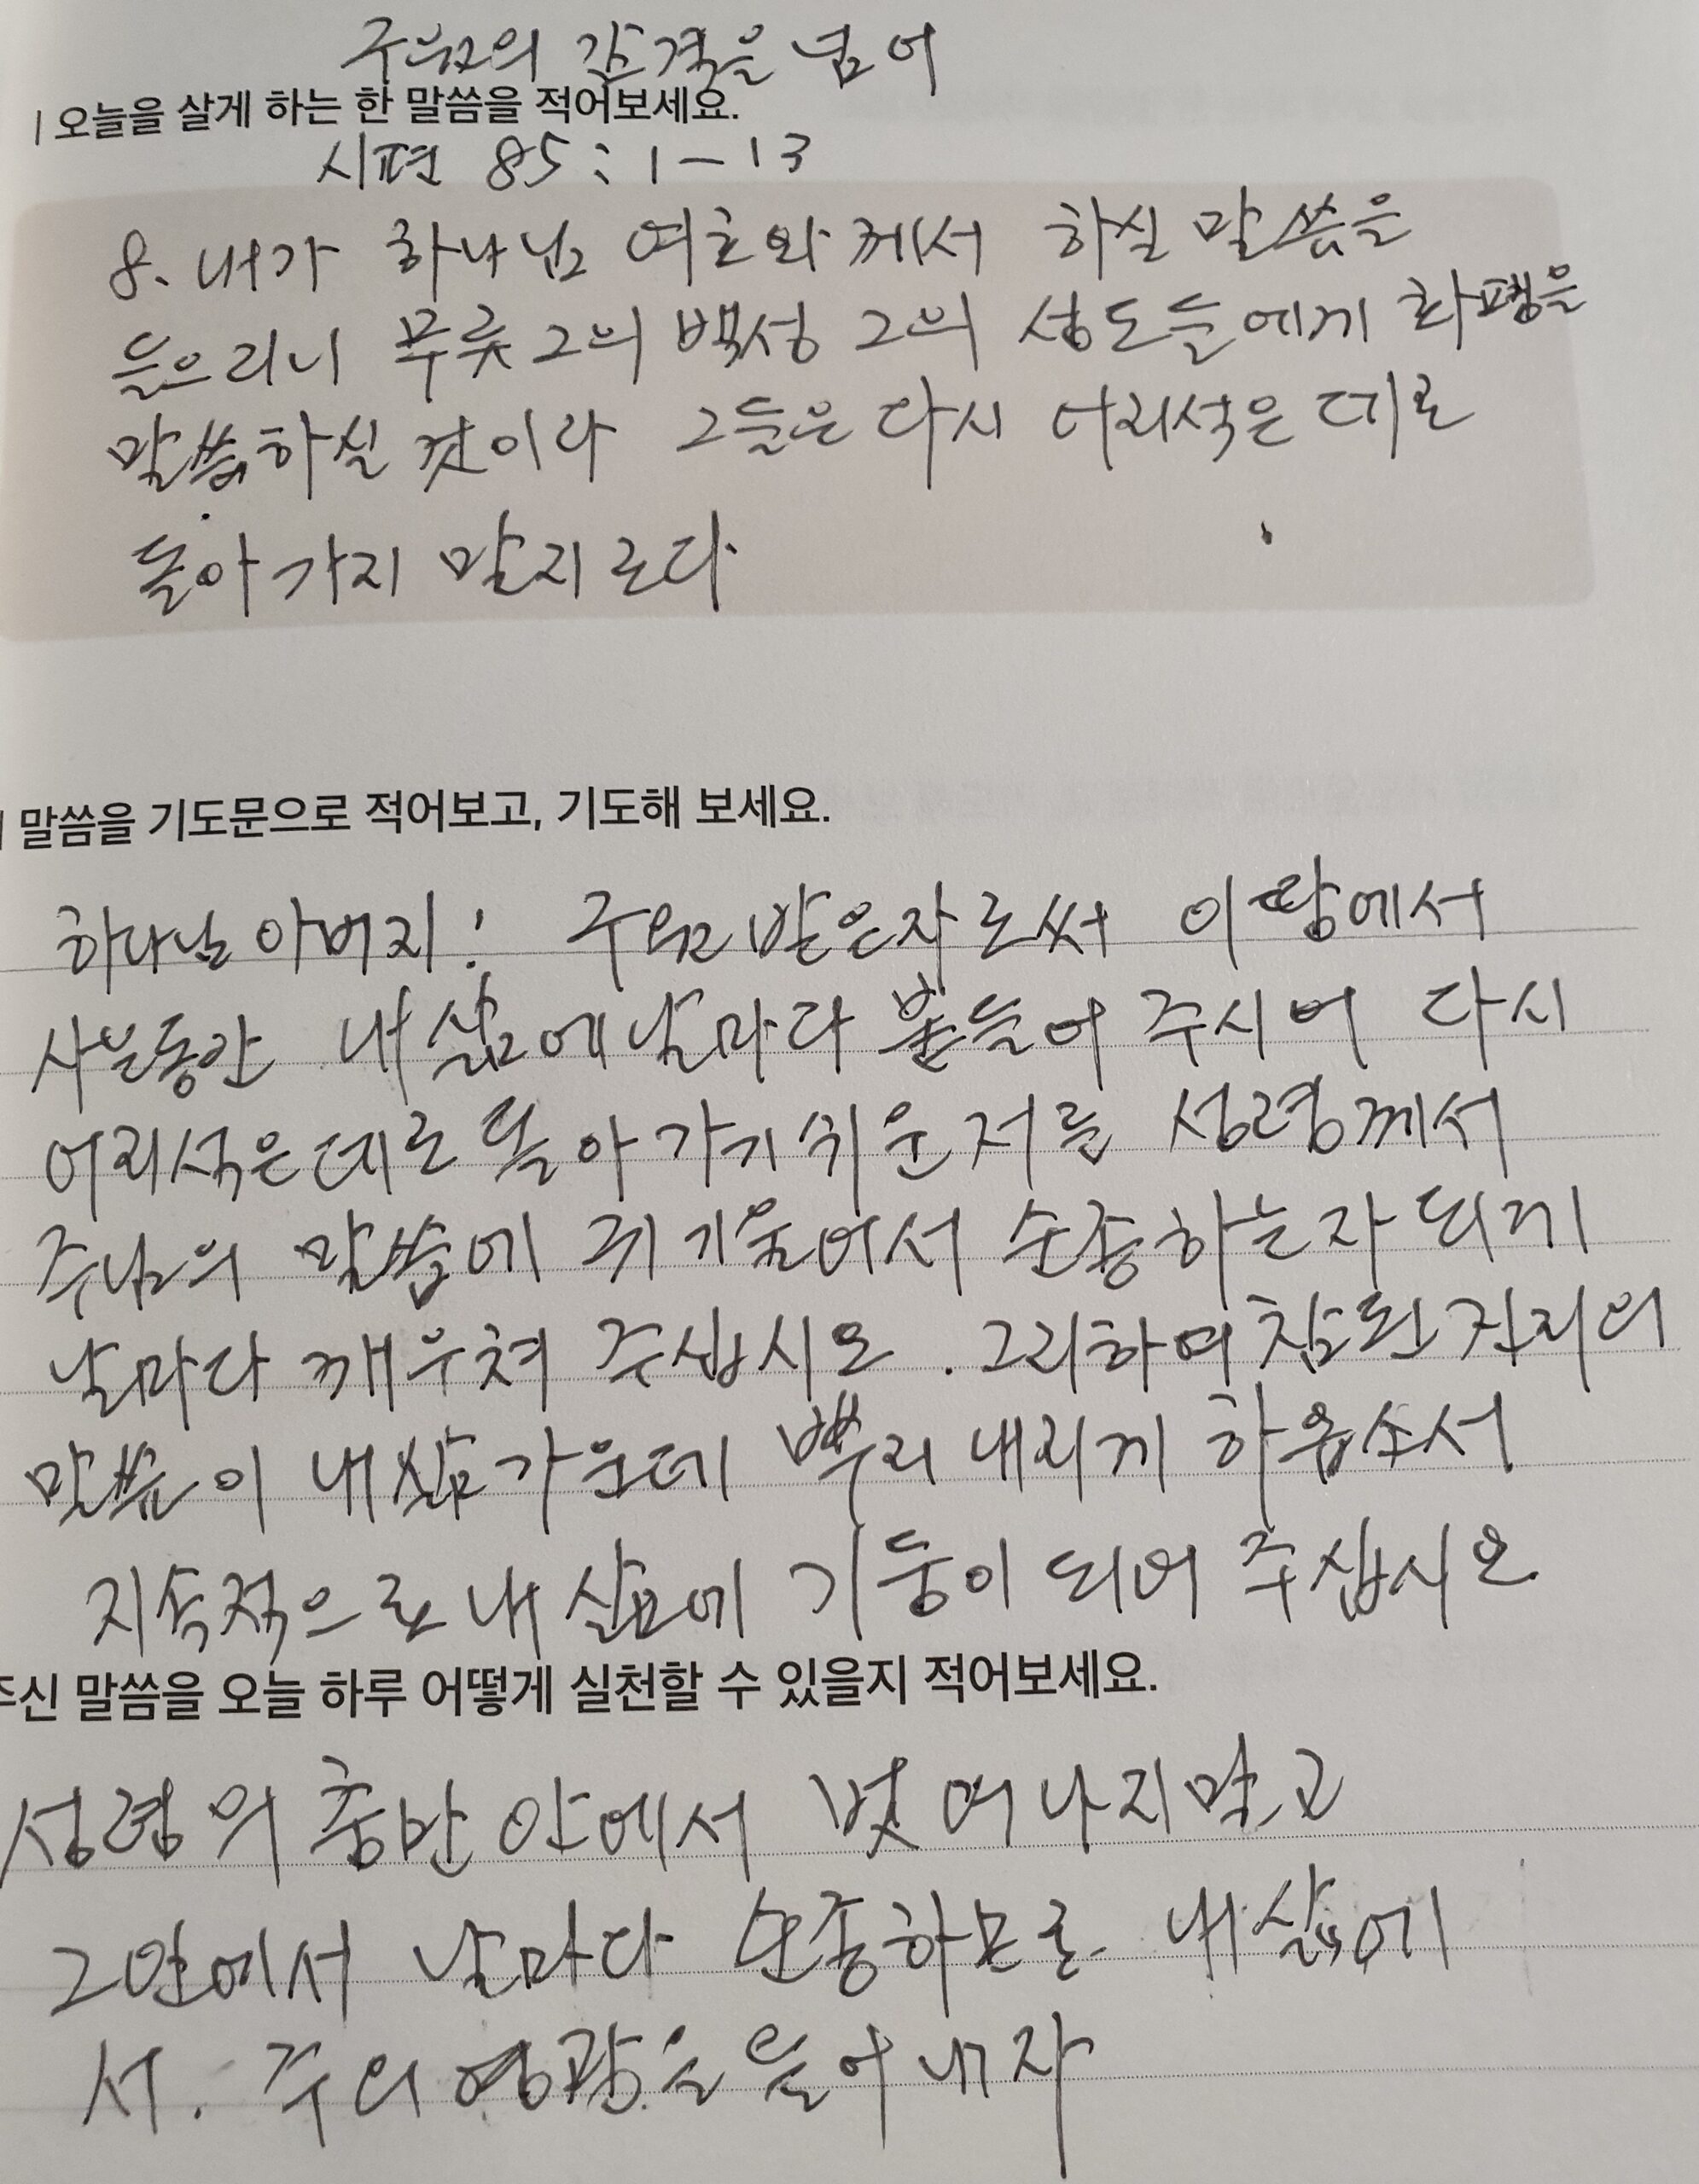 구원의 감격을 넘어
| 오늘을 살게 하는 한 말씀을 적어보세요.
시편 85 : 1 - 13
8. 내가 하나님 여호와께서 하실 말씀을
들으리니 무릇 그의 백성 그의 성도들에게 화평을
말씀하실 것이라 그들은 다시 어리석은 데로
돌아가지 말지로다
말씀을 기도문으로 적어보고, 기도해 보세요.
하나님 아버지! 구원 받은자로써 이땅에서
사는동안 내 삶에 날마다 붙들어 주시어 다시
어리석은데로 돌아가기 쉬운 저를 성령께서
주님의 말씀에 귀 기울여서 순종하는자 되게
날마다 깨우쳐 주십시오. 그리하여 참된 진리의
말씀이 내 삶 가운데 뿌리 내리게 하옵소서
지속적으로 내 삶에 기둥이 되어 주십시오
주신 말씀을 오늘 하루 어떻게 실천할 수 있을지 적어보세요.
성령의 충만 안에서 벗어나지말고
그안에서 날마다 순종하므로 내 삶에
서. 주의 영광을 들어내자